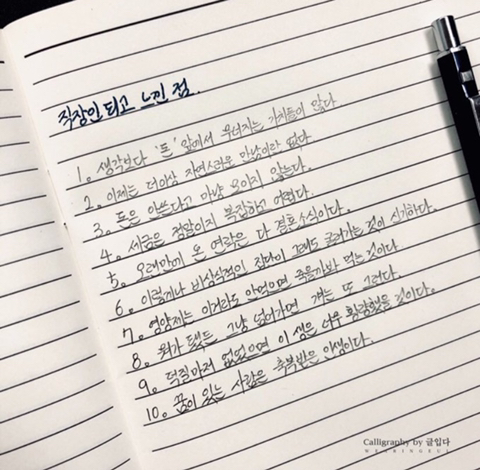 직장인 되고 느낀 점.
1. 생각보다 '돈' 앞에서 무너지는 가치들이 많다
2. 이제는 더이상 자연스러운 만남이란 없다
3. 돈은 안쓴다고 마냥 모이지 않는다.
4. 세금은 정말이지 복잡하고 어렵다.
5. 오랜만에 온 연락은 다 결혼소식이다.
6. 이렇게나 비상식적인 집단이 그래도 굴러가는 것이 신기하다.
7. 영양제는 이거라도 안먹으면 죽을까봐 먹는 것이다
8. 뭐가 됐든 그냥 넘어가면 걔는 또 그런다.
9. 덕질마저 없었으면 이 생은 너무 황량했을 것이다.
10. 꿈이 있는 사람은 축복받은 인생이다.
Calligraphy by 글입다
WEARINGEUL